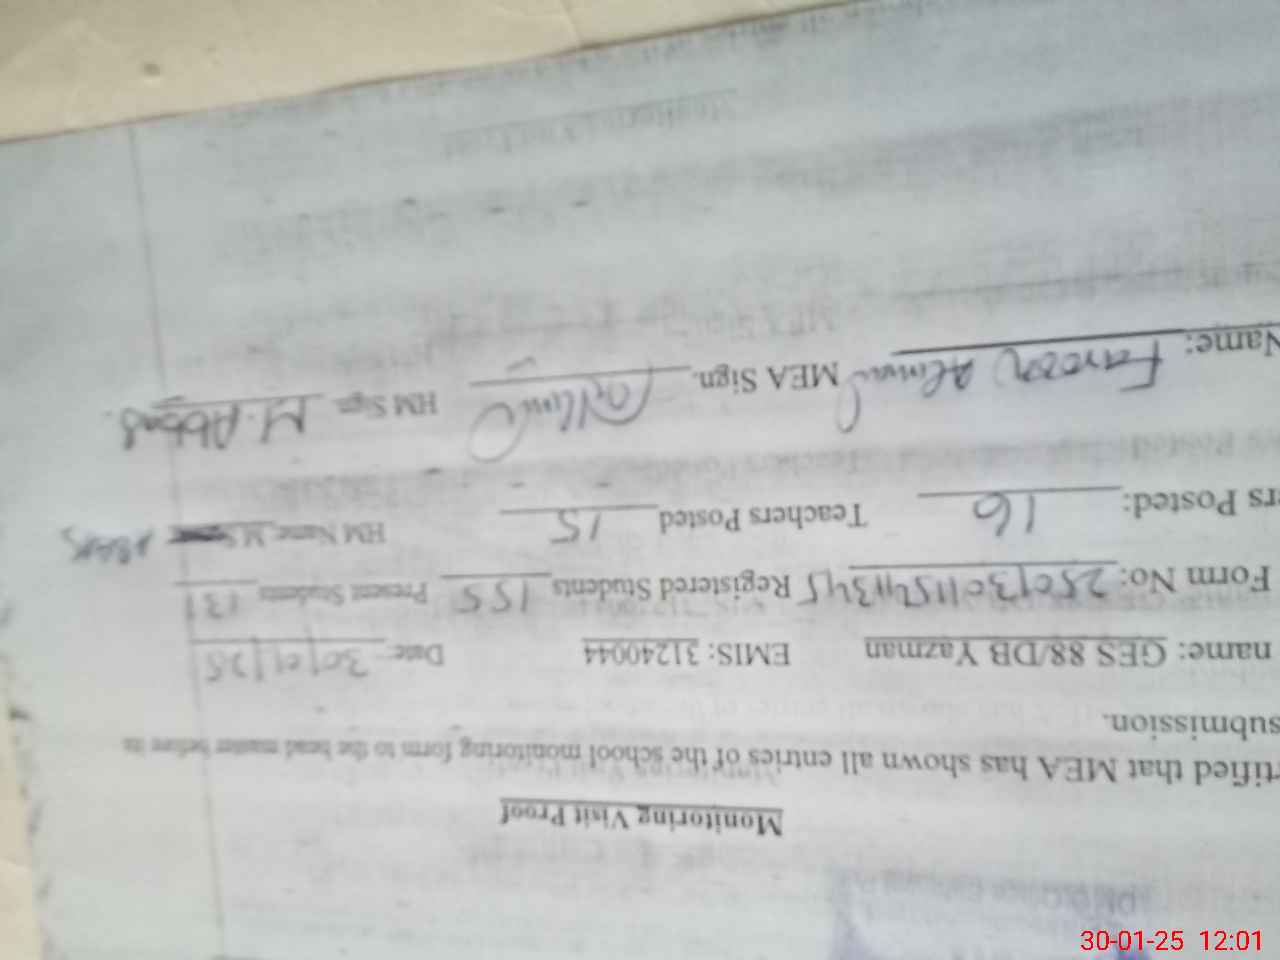 Monitoring Visit Proof
rtified that MEA has shown all entries of the school monitoring form to the head master before its
submission.
name: GES 88/DB Yazman EMIS: 31240044 Date: 30/01/25
Form No: Registered Students 155 Present Students 131
ers Posted: 16 Teachers Posted 15 HM Name
Name: Farooq Ahmad MEA Sign. HM Sign M. Abbas.
30-01-25 12:01